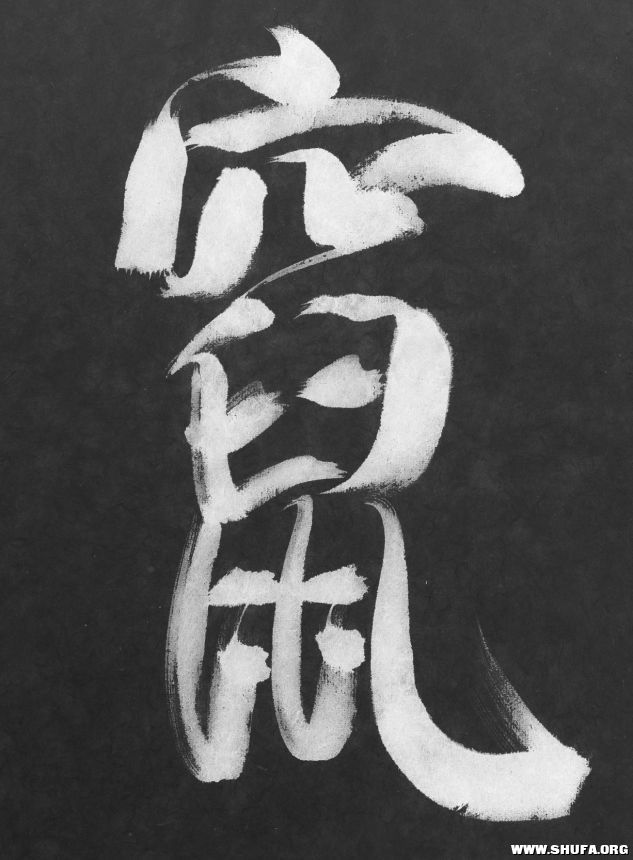 竄
WWW.SHUFA.ORG